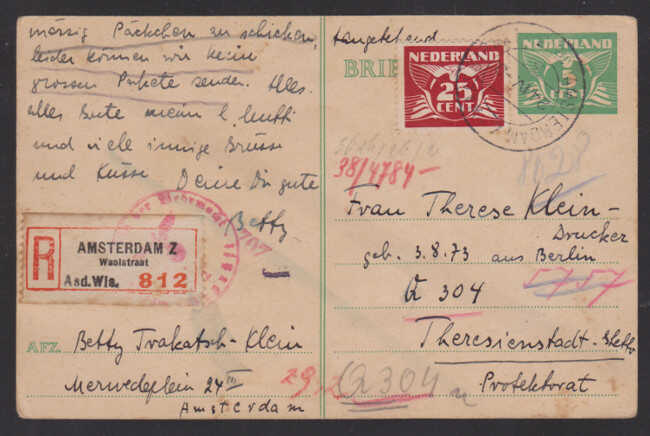 mässig Päckchen zu schicken,
leider können wir kein
grossen Pakete senden. Alles
alles Gute mein l. Mutti
und viele innige Grüsse
und Küsse Deine Dir gute
Betty
R
AMSTERDAM Z
Waalstraat
Asd.Wls. 812
AFZ. Betty Trakatsch-Klein
Merwedeplein 24 III
Amsterdam
Aangetekend
BRIE
NEDERLAND
25
CENT
NEDERLAND
5
38/4784-
Frau Therese Klein-
Drucker
geb. 3.8.73 aus Berlin
Q 304
5757
Theresienstadt-Ghetto
Protektorat
Q304